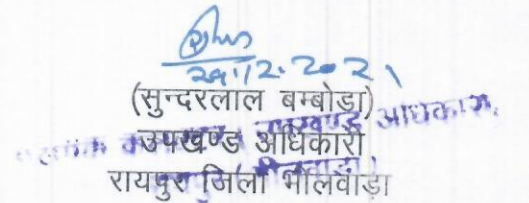 29.12.2021
(सुन्दरलाल बम्बोडा)
उपखण्ड अधिकारी
रायपुर जिला भीलवाड़ा